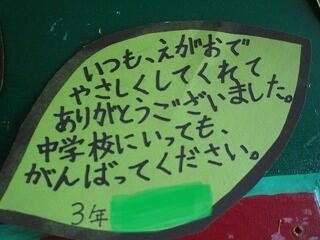 いつも、えがおで
やさしくしてくれて
ありがとうございました。
中学校にいっても、
がんばってください。
3年